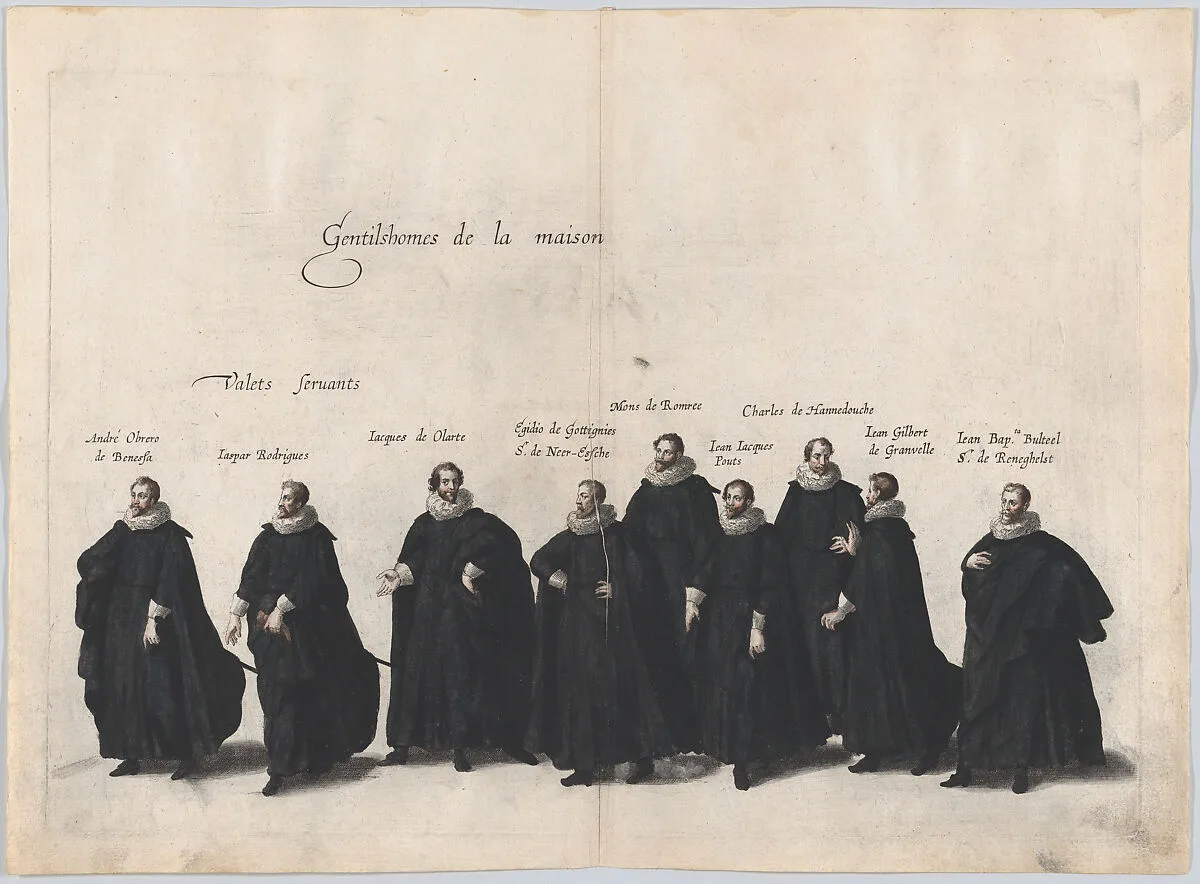 Gentilshomes de la maison
Valets ſeruants
André Obrero
de Beneſſa
Iaspar Rodrigues
Iacques de Olarte
Egidio de Gottignies
Sr. de Neer-Eſſche
Mons de Romree
Iean Iacques
Pouts
Charles de Hannedouche
Iean Gilbert
de Granvelle
Iean Bap.ta Bulteel
Sr. de Reneghelst